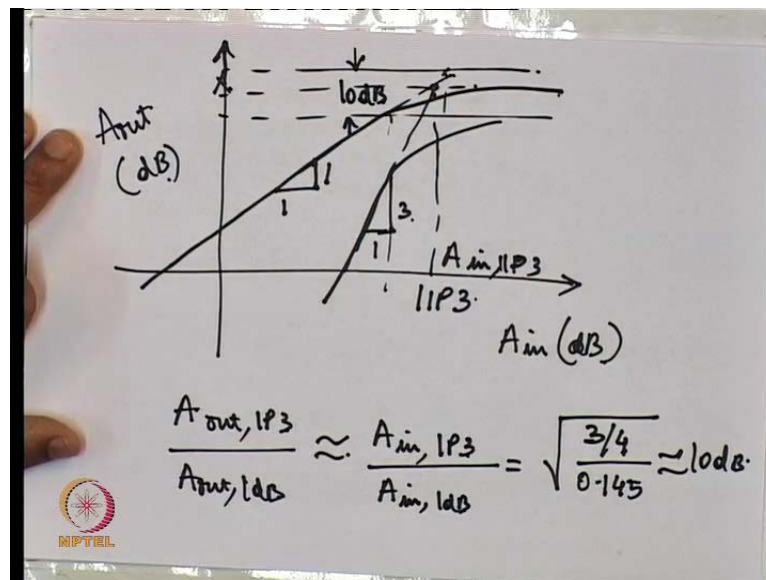 A out
(dB)
10dB
1
1
3.
1
A in, IIP3
IIP3.
A in (dB)
A out, IP3 / A out, 1dB ≈ A in, IP3 / A in, 1dB = √(3/4 / 0.145) ≈ 10dB.
NPTEL